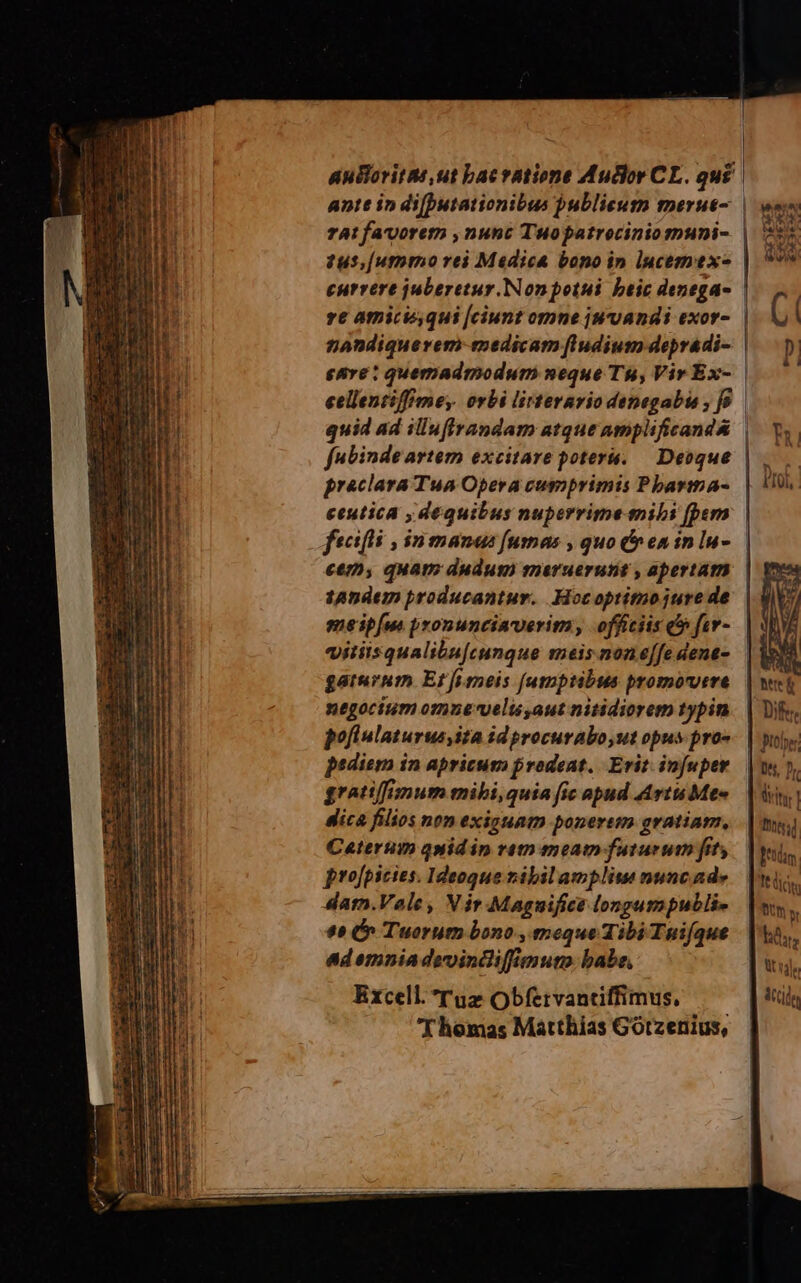 auctoritas, ut hac ratione Auctor CL. qui
ante in disputationibus publicum merue-
rat favorem, nunc Tuo patrocinio muni-
tus, summo rei Medicæ bono in lucem ex-
currere juberetur. Non potui heic denega-
re amicis, qui sciunt omne juvandi exor-
nandique rem medicam studium deprædi-
care: quemadmodum neque Tu, Vir Ex-
cellentissime, orbi litterario denegabis, se
quid ad illustrandam atque amplificandã
subinde artem excitare poteris. Deoque
præclara Tua Opera cumprimis Pharma-
ceutica, de quibus nuperrime mihi spem
fecisti, in manus sumas, quo & ea in lu-
cem, quam dudum meruerunt, apertam
tandem producantur. Hoc optimo jure de
meipsus pronunciaverim, officiis & ser-
vitiis qualibuscunque meis non esse dene-
gaturum. Et si meis sumptibus promovere
negocium omne velis, aut nitidiorem typin
postulaturus, ita id procurabo, ut opus pro-
pediem in apricum prodeat. Erit insuper
gratissimum mihi, quia sic apud Artis Me-
dicæ filios non exiguam ponerem gratiam.
Cæterum quid in rem meam futurum sit,
prospicies. Ideoque nihil amplius nunc ad-
dam. Vale, Vir Magnifice longum publi-
co & Tuorum bono, meque Tibi Tuisque
ad omnia devinctissimum habe.
Excell. Tuæ Observantissimus,
Thomas Matthias Götzenius,